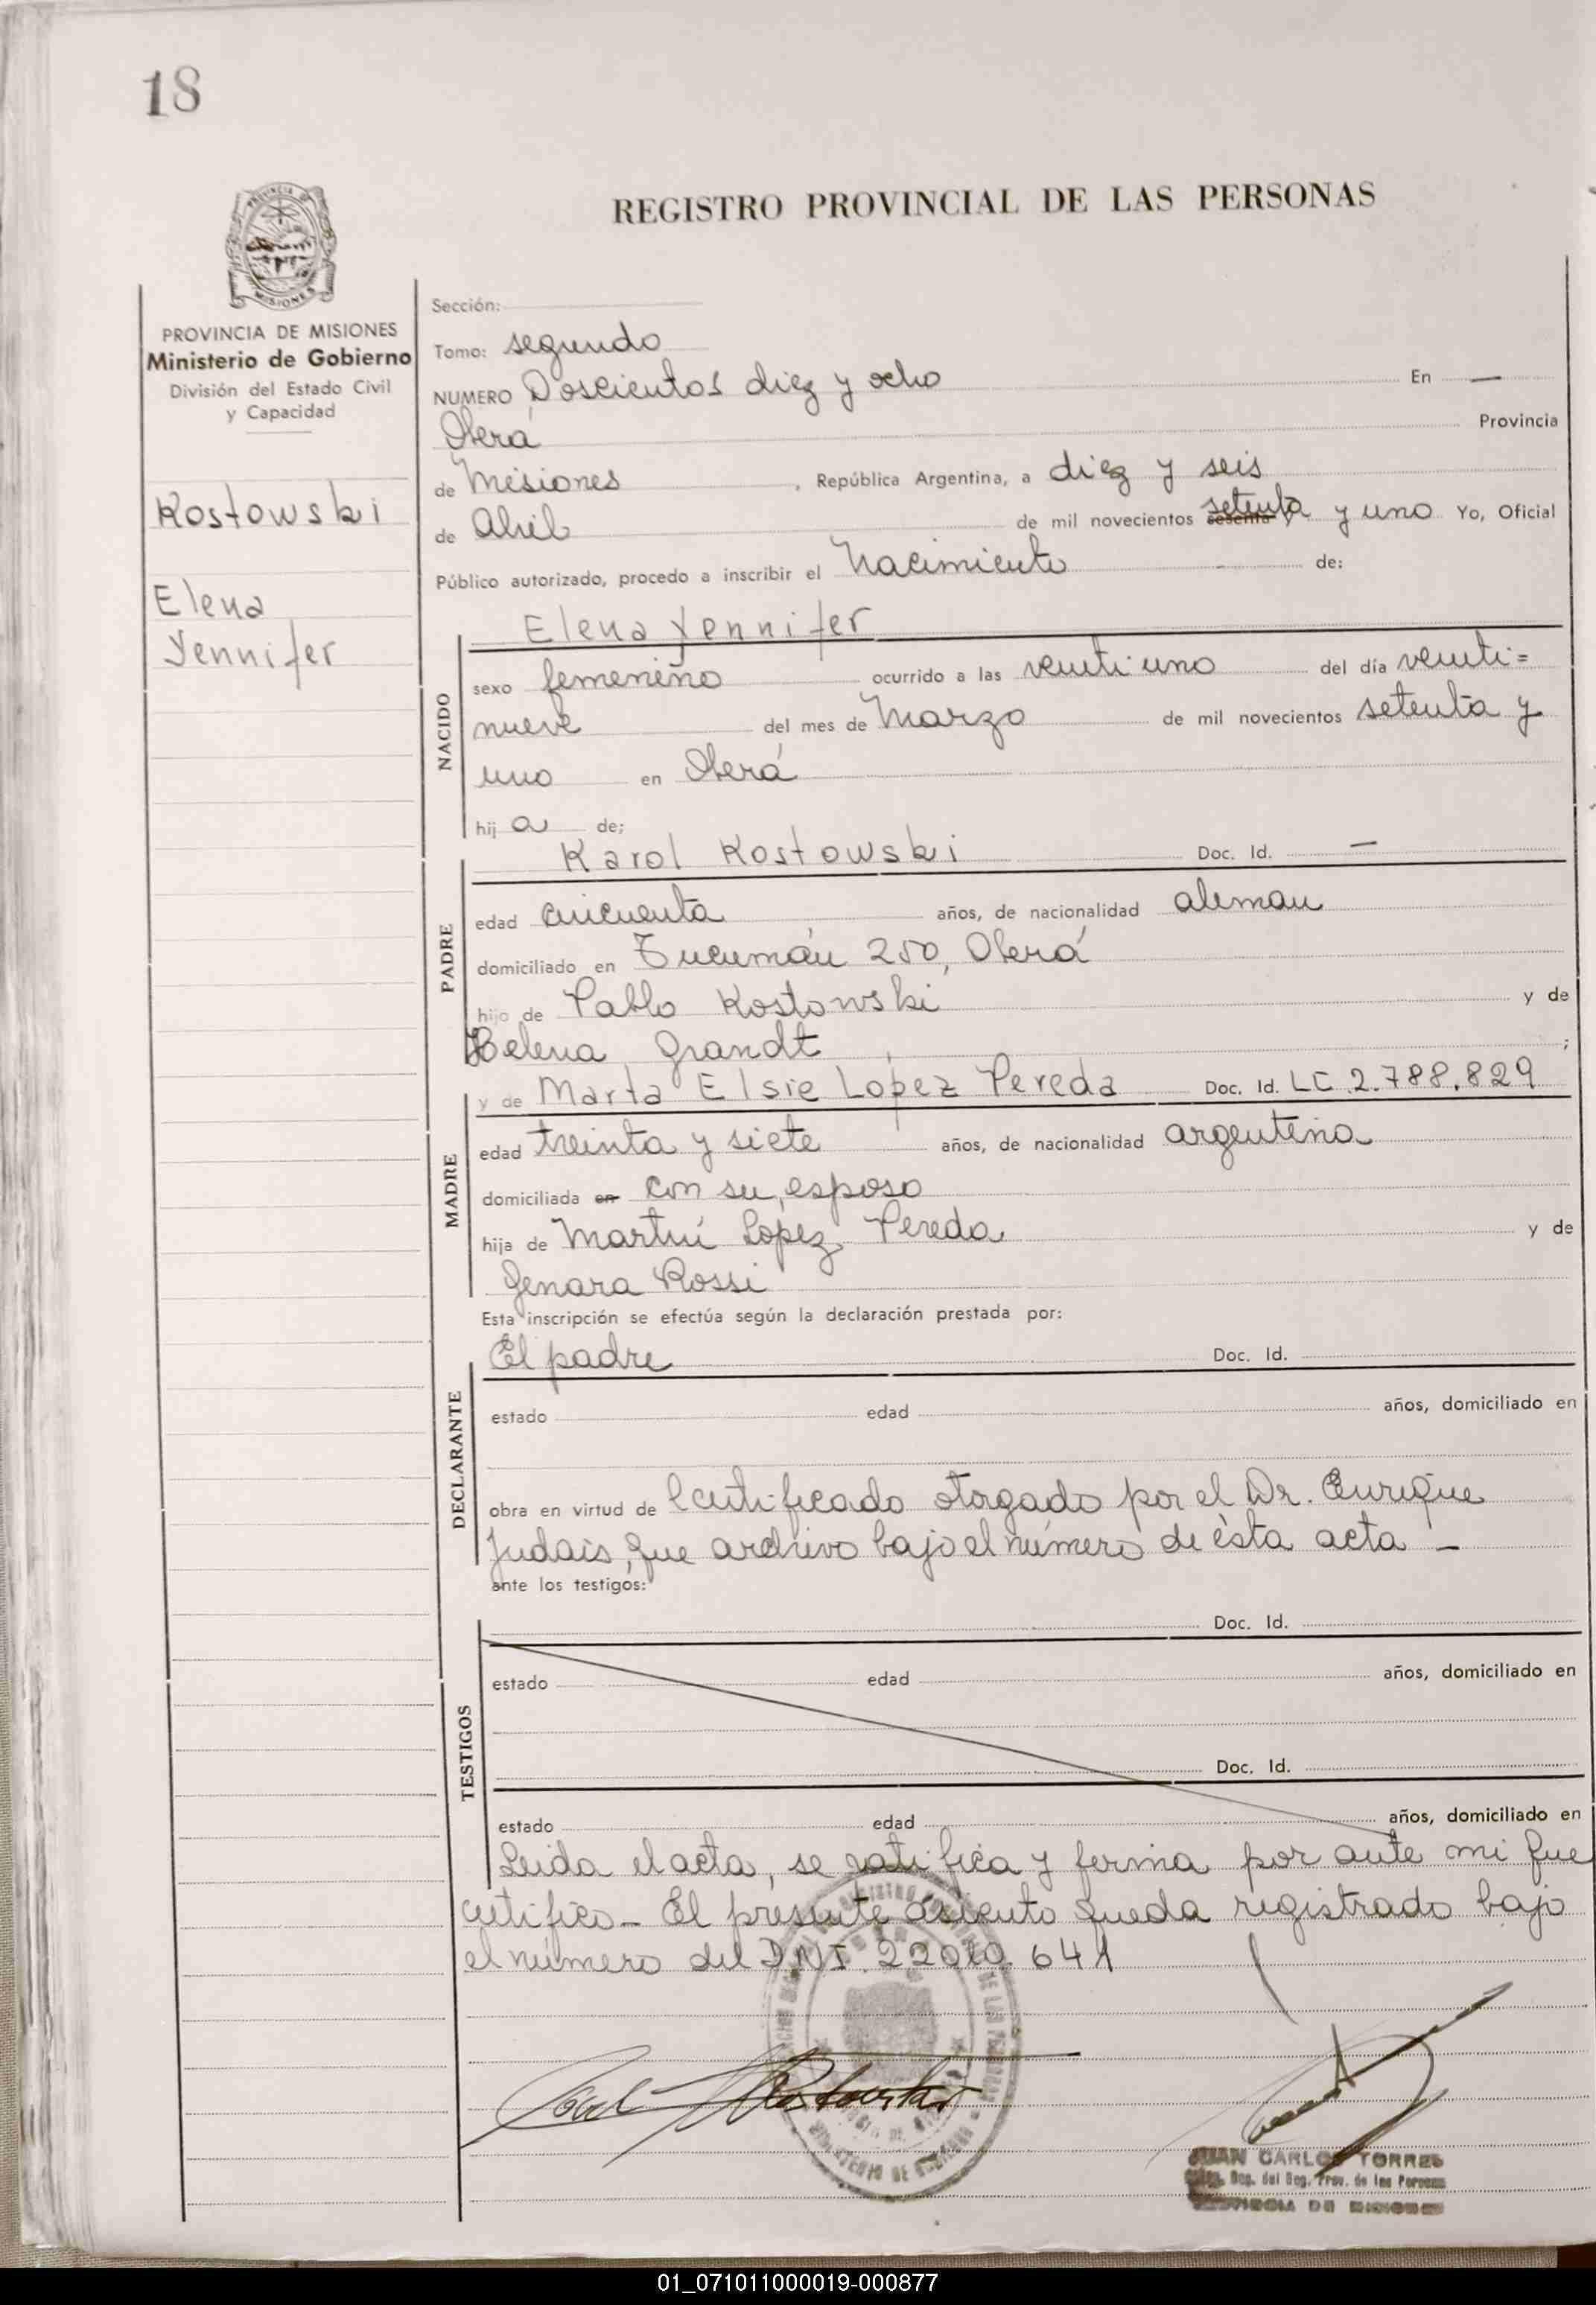 18
REGISTRO PROVINCIAL DE LAS PERSONAS
PROVINCIA DE
MISIONES
PROVINCIA DE MISIONES
Ministerio de Gobierno
División del Estado Civil
y Capacidad
Kostowski
Elena
Yennifer
Sección:
Tomo: segundo
NUMERO Doscientos diez y ocho En —
Oberá Provincia
de Misiones, República Argentina, a diez y seis
de Abril de mil novecientos sesenta y setenta y uno Yo, Oficial
Público autorizado, procedo a inscribir el Nacimiento de:
Elena Yennifer
NACIDO
sexo femenino ocurrido a las veinti uno del día veinti=
nueve del mes de Marzo de mil novecientos setenta y
uno en Oberá
hij a de;
Karol Kostowski Doc. Id. —
PADRE
edad cincuenta años, de nacionalidad aleman
domiciliado en Tucumán 250, Oberá
hijo de Pablo Kostowski y de
Helena Grandt ;
y de Marta Elsie Lopez Pereda Doc. Id. LC 2.788.829
MADRE
edad treinta y siete años, de nacionalidad argentina
domiciliada en con su esposo
hija de Martín Lopez Pereda y de
Genara Rossi
Esta inscripción se efectúa según la declaración prestada por:
El padre Doc. Id.
DECLARANTE
estado edad años, domiciliado en
obra en virtud de Certificado otorgado por el Dr. Enrique
Judais, que archivo bajo el número de ésta acta —
ante los testigos:
Doc. Id.
TESTIGOS
estado edad años, domiciliado en
Doc. Id.
estado edad años, domiciliado en
Leida el acta, se ratifica y firma por ante mi que
certifico_ El presente asiento queda registrado bajo
el número del D.N.I. 22010 641
Kostowski
JUAN CARLOS TORRES
Reg. del Reg. Prov. de las Personas
PROVINCIA DE MISIONES
01_071011000019-000877